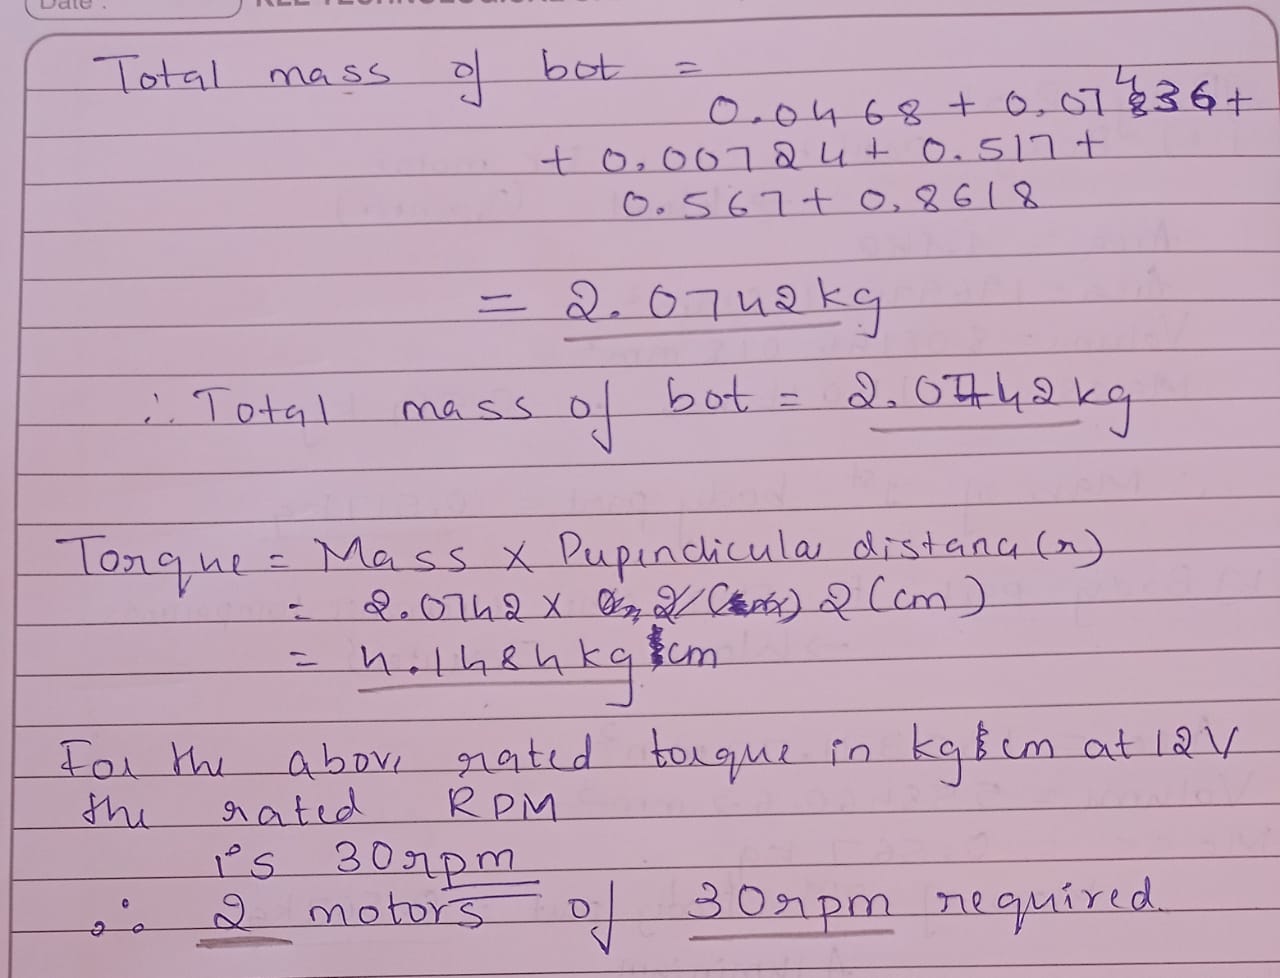 Total mass of bot =
0.0468 + 0.07436+
+ 0.00724+ 0.517+
0.567+ 0.8618
= 2.0742kg
∴ Total mass of bot = 2.0742kg
Torque = Mass x Pupendicular distance (r)
= 2.0742 x 2 (cm)
= 4.1484 kg cm
For the above rated torque in kg cm at 12V
the rated RPM
is 30rpm
∴ 2 motors of 30rpm required.